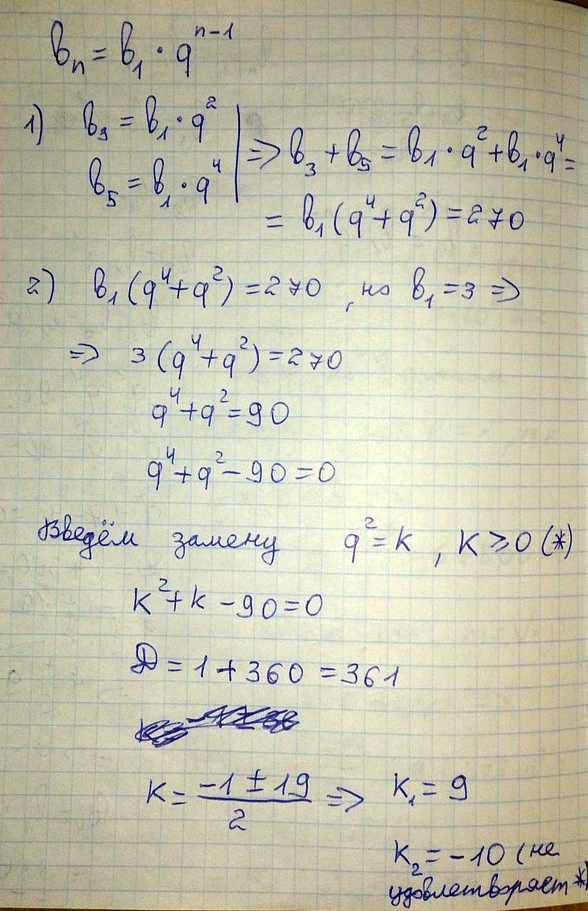 bₙ = b₁ · qⁿ⁻¹
1) b₃ = b₁ · q²
b₅ = b₁ · q⁴
=> b₃ + b₅ = b₁ · q² + b₁ · q⁴ =
= b₁(q⁴ + q²) = 270
2) b₁(q⁴ + q²) = 270 , но b₁ = 3 =>
=> 3(q⁴ + q²) = 270
q⁴ + q² = 90
q⁴ + q² - 90 = 0
Введём замену q² = k , k ≥ 0 (*)
k² + k - 90 = 0
D = 1 + 360 = 361
k = (-1 ± 19)/2 => k₁ = 9
k₂ = -10 (не
удовлетворяет *)